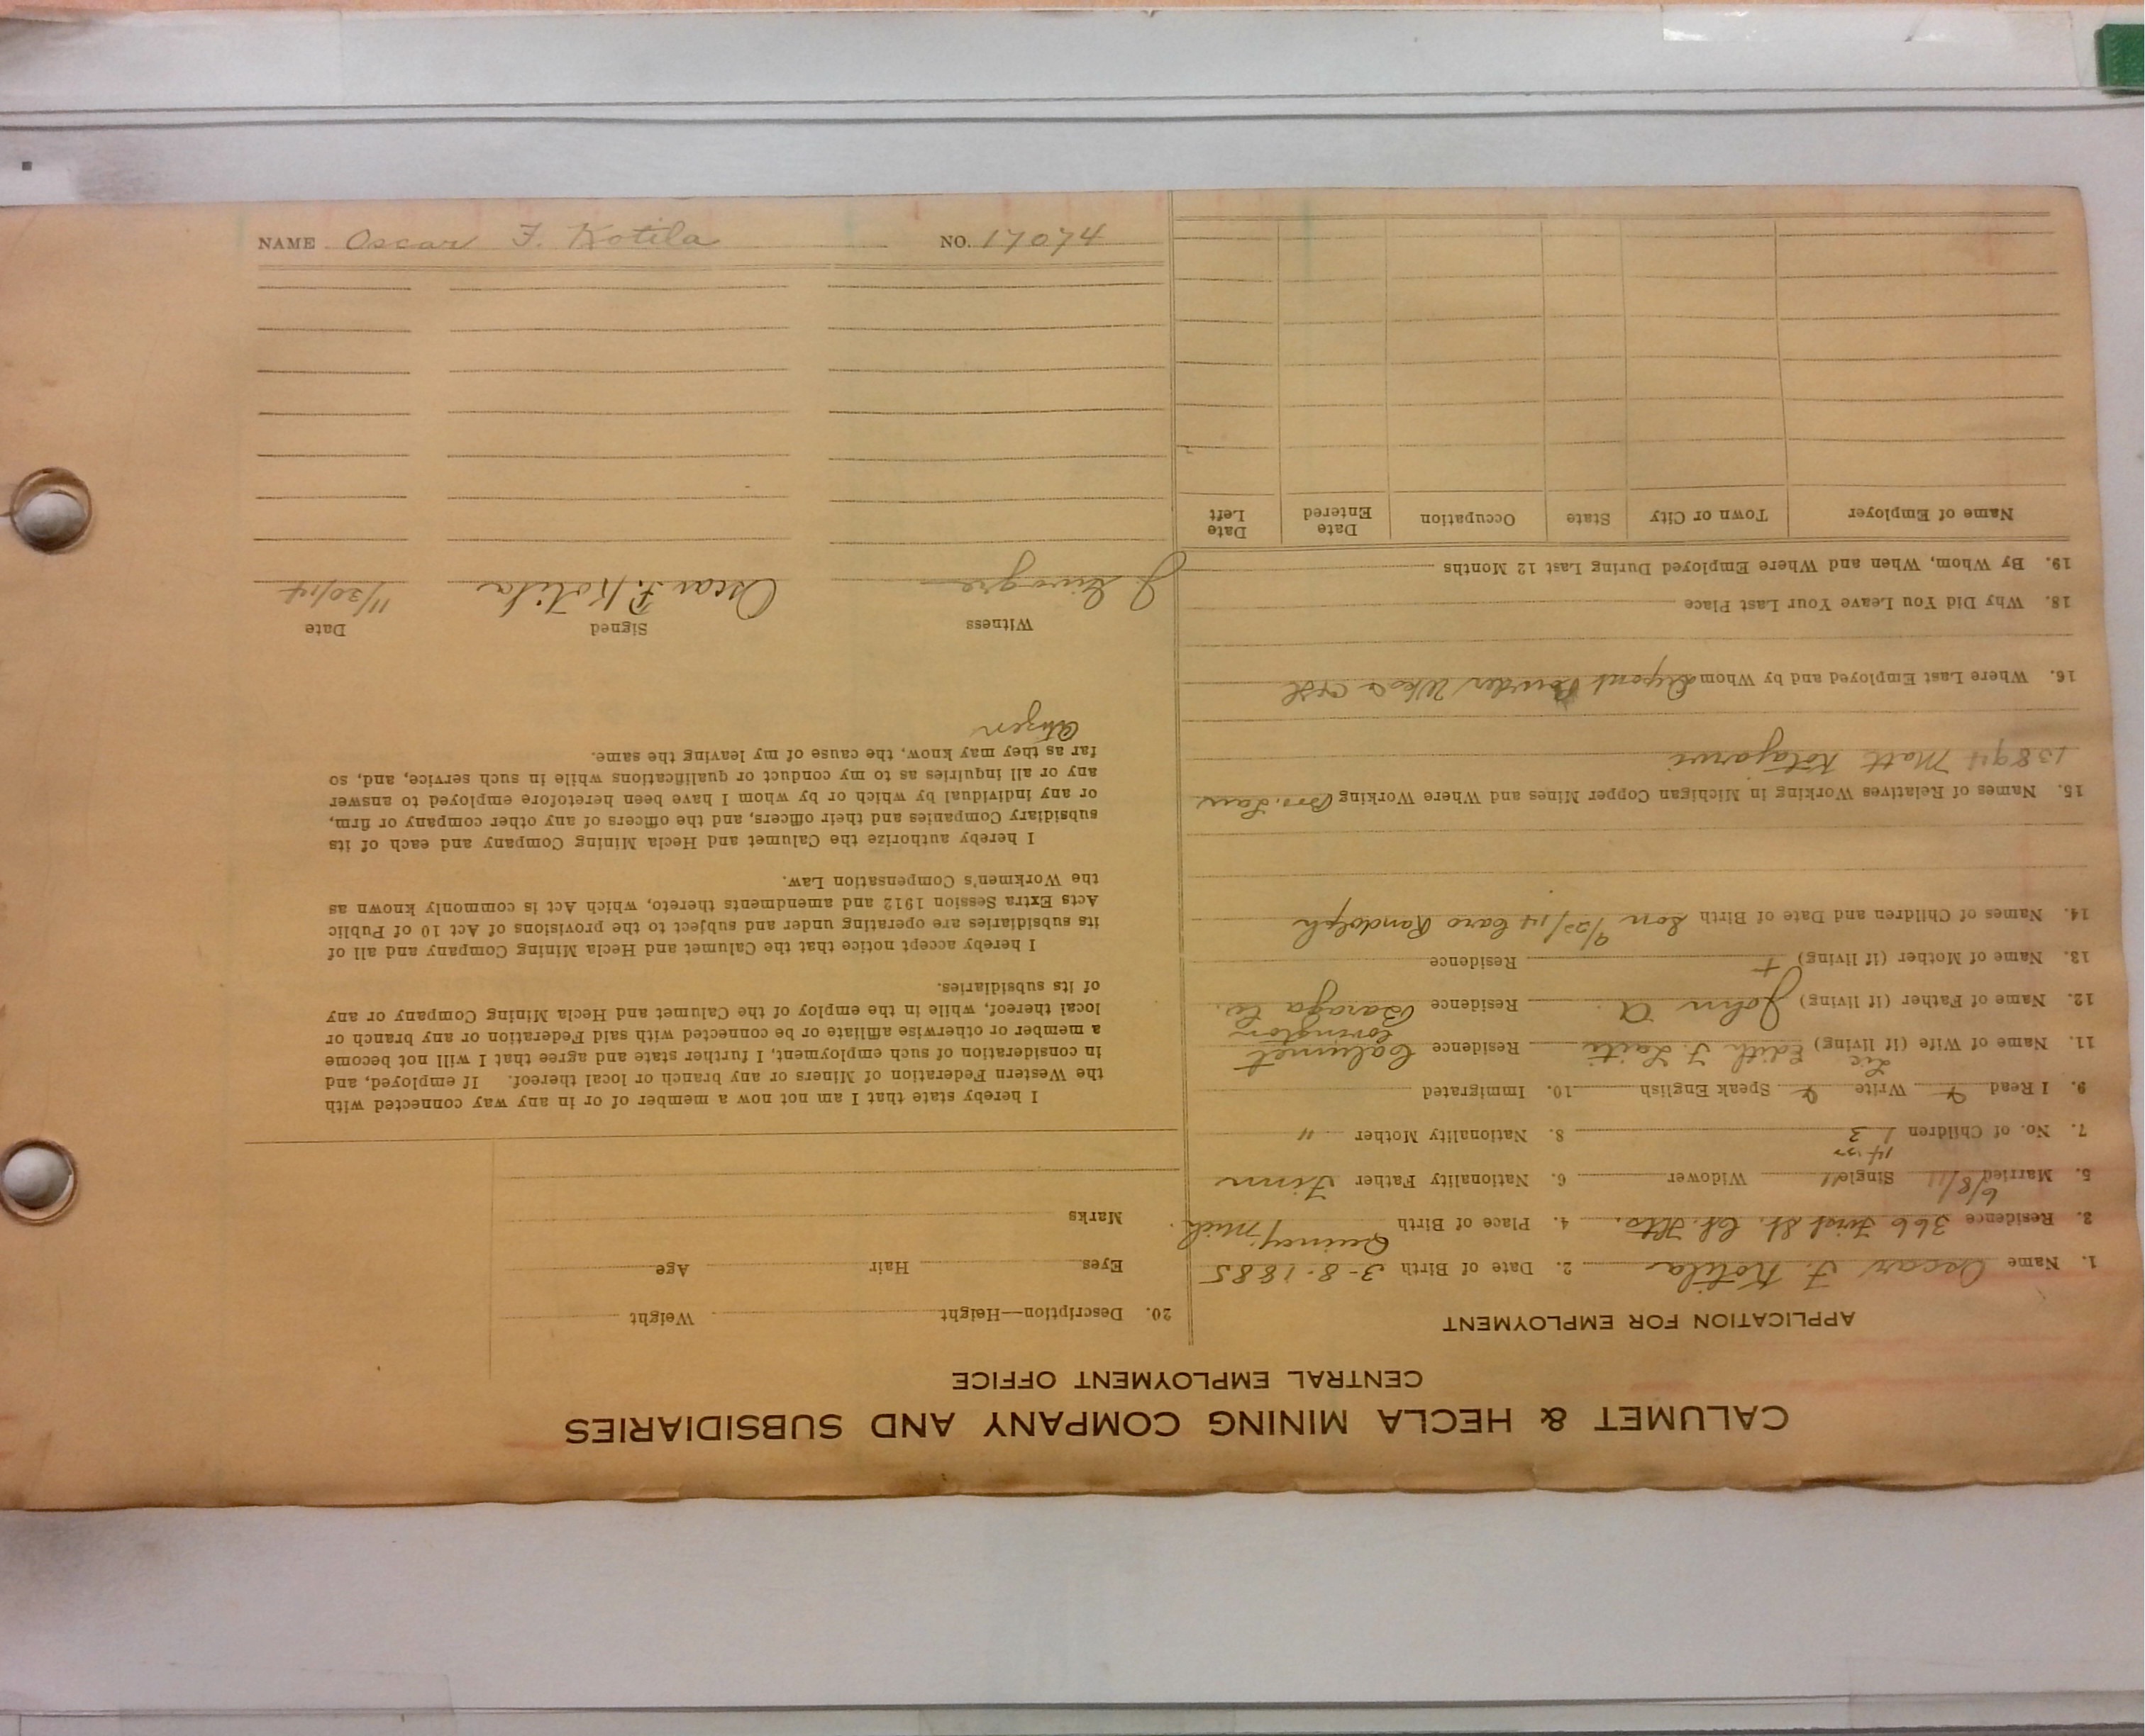 CALUMET & HECLA MINING COMPANY AND SUBSIDIARIES
CENTRAL EMPLOYMENT OFFICE
APPLICATION FOR EMPLOYMENT
1. Name Oscar F. Kotila 2. Date of Birth 3-8-1885
3. Residence 366 First St. 4. Place of Birth Quincy, Mich.
6/8/11
5. Married 11 Single Widower 6. Nationality Father Finn
14
7. No. of Children 1 3 8. Nationality Mother "
9. I Read Write Speak English 10. Immigrated
11. Name of Wife (if living) Edith J. Residence Calumet
Covington
12. Name of Father (if living) John A. Residence Baraga Co.
13. Name of Mother (if living) + Residence
14. Names of Children and Date of Birth Son 9/22/14 Randolph
15. Names of Relatives Working in Michigan Copper Mines and Where Working Bro. Law
13894 Matt Kotajarvi
16. Where Last Employed and by Whom Dupont Powder C&H
18. Why Did You Leave Your Last Place
19. By Whom, When and Where Employed During Last 12 Months
Name of Employer Town or City State Occupation Date Entered Date Left
20. Description—Height Weight
Eyes Hair Age
Marks
I hereby state that I am not now a member of or in any way connected with
the Western Federation of Miners or any branch or local thereof. If employed, and
in consideration of such employment, I further state and agree that I will not become
a member or otherwise affiliate or be connected with said Federation or any branch or
local thereof, while in the employ of the Calumet and Hecla Mining Company or any
of its subsidiaries.
I hereby accept notice that the Calumet and Hecla Mining Company and all of
its subsidiaries are operating under and subject to the provisions of Act 10 of Public
Acts Extra Session 1912 and amendments thereto, which Act is commonly known as
the Workmen's Compensation Law.
I hereby authorize the Calumet and Hecla Mining Company and each of its
subsidiary Companies and their officers, and the officers of any other company or firm,
or any individual by which or by whom I have been heretofore employed to answer
any or all inquiries as to my conduct or qualifications while in such service, and, so
far as they may know, the cause of my leaving the same.
Citizen
Witness Signed Date
J. Oscar F. Kotila 11/30/14
NAME Oscar F. Kotila NO. 17074